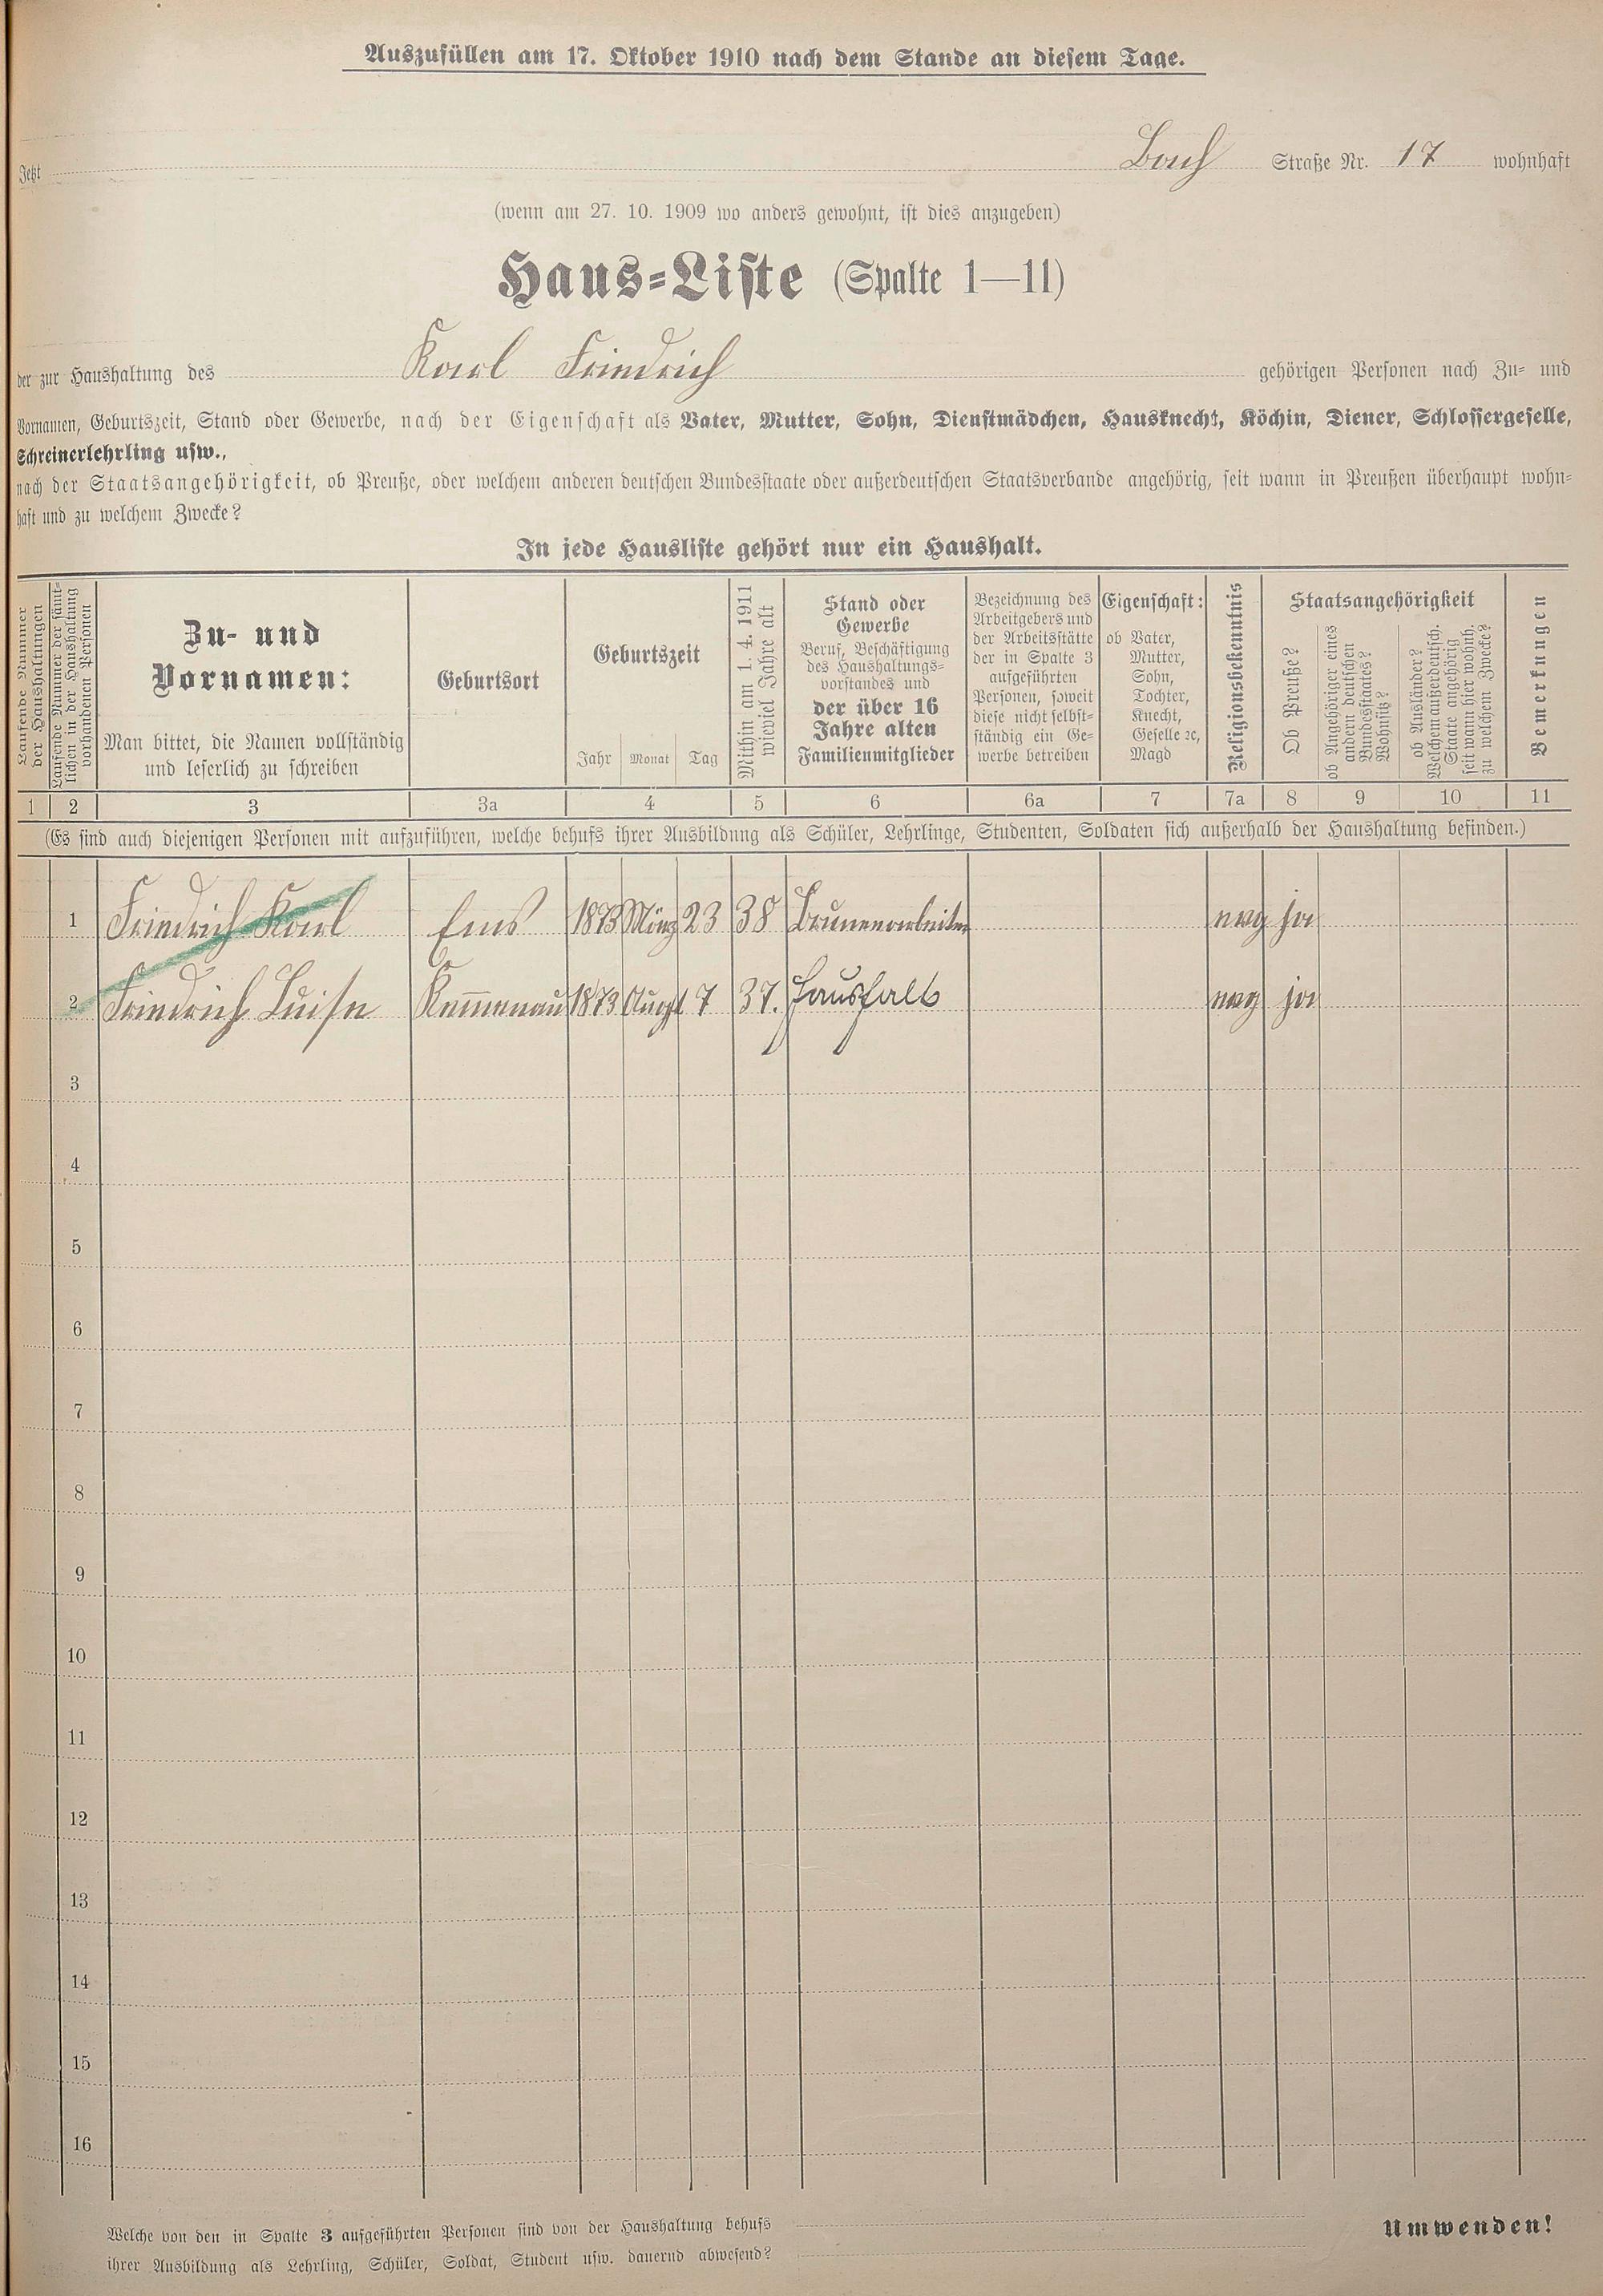 Auszufüllen am 17. Oktober 1910 nach dem Stande an diesem Tage.
Jetzt Bach Straße Nr. 17 wohnhaft
(wenn am 27. 10. 1909 wo anders gewohnt, ist dies anzugeben)
Haus-Liste (Spalte 1—11)
der zur Haushaltung des Karl Friedrich gehörigen Personen nach Zu- und
Vornamen, Geburtszeit, Stand oder Gewerbe, nach der Eigenschaft als Vater, Mutter, Sohn, Dienstmädchen, Hausknecht, Köchin, Diener, Schlossergeselle,
Schreinerlehrling usw.,
nach der Staatsangehörigkeit, ob Preuße, oder welchem anderen deutschen Bundesstaate oder außerdeutschen Staatsverbande angehörig, seit wann in Preußen überhaupt wohn-
haft und zu welchem Zwecke?
In jede Hausliste gehört nur ein Haushalt.
Laufende Nummer
der Haushaltungen
Laufende Nummer der sämt-
lichen in der Haushaltung
vorhandenen Personen
Zu- und
Vornamen:
Man bittet, die Namen vollständig
und leserlich zu schreiben
Geburtsort
Geburtszeit
Jahr Monat Tag
Mithin am 1. 4. 1911
wieviel Jahre alt
Stand oder
Gewerbe
Beruf, Beschäftigung
des Haushaltungs-
vorstandes und
der über 16
Jahre alten
Familienmitglieder
Bezeichnung des
Arbeitgebers und
der Arbeitsstätte
der in Spalte 3
aufgeführten
Personen, soweit
diese nicht selbst-
ständig ein Ge-
werbe betreiben
Eigenschaft:
ob Vater,
Mutter,
Sohn,
Tochter,
Knecht,
Geselle ꝛc,
Magd
Religionsbekenntnis
Staatsangehörigkeit
Ob Preuße?
ob Angehöriger eines
andern deutschen
Bundesstaates?
Wohnsitz?
ob Ausländer?
Welchem außerdeutsch.
Staate angehörig
seit wann hier wohnh.
zu welchem Zwecke?
Bemerkungen
1 2 3 3a 4 5 6 6a 7 7a 8 9 10 11
(Es sind auch diejenigen Personen mit aufzuführen, welche behufs ihrer Ausbildung als Schüler, Lehrlinge, Studenten, Soldaten sich außerhalb der Haushaltung befinden.)
1 Friedrich Karl Ems 1873 März 23 38 Brunenarbeiter evg ja
2 Friedrich Luise Kemmenau 1873 Augst 7 37. Haushalt evg ja
3
4
5
6
7
8
9
10
11
12
13
14
15
16
Welche von den in Spalte 3 aufgeführten Personen sind von der Haushaltung behufs
ihrer Ausbildung als Lehrling, Schüler, Soldat, Student usw. dauernd abwesend?
Umwenden!